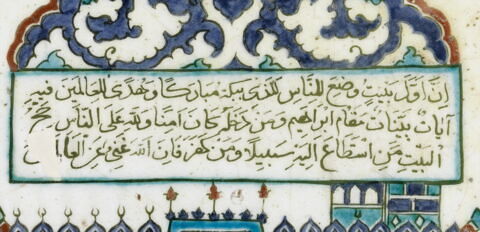 إن أول بيت وضع للناس للذى ببكة مباركا وهدى للعالمين فيه
آيات بينات مقام ابراهيم ومن دخله كان امنا ولله على الناس حج
البيت من استطاع اليه سبيلا ومن كفر فان الله غنى عن العالمين